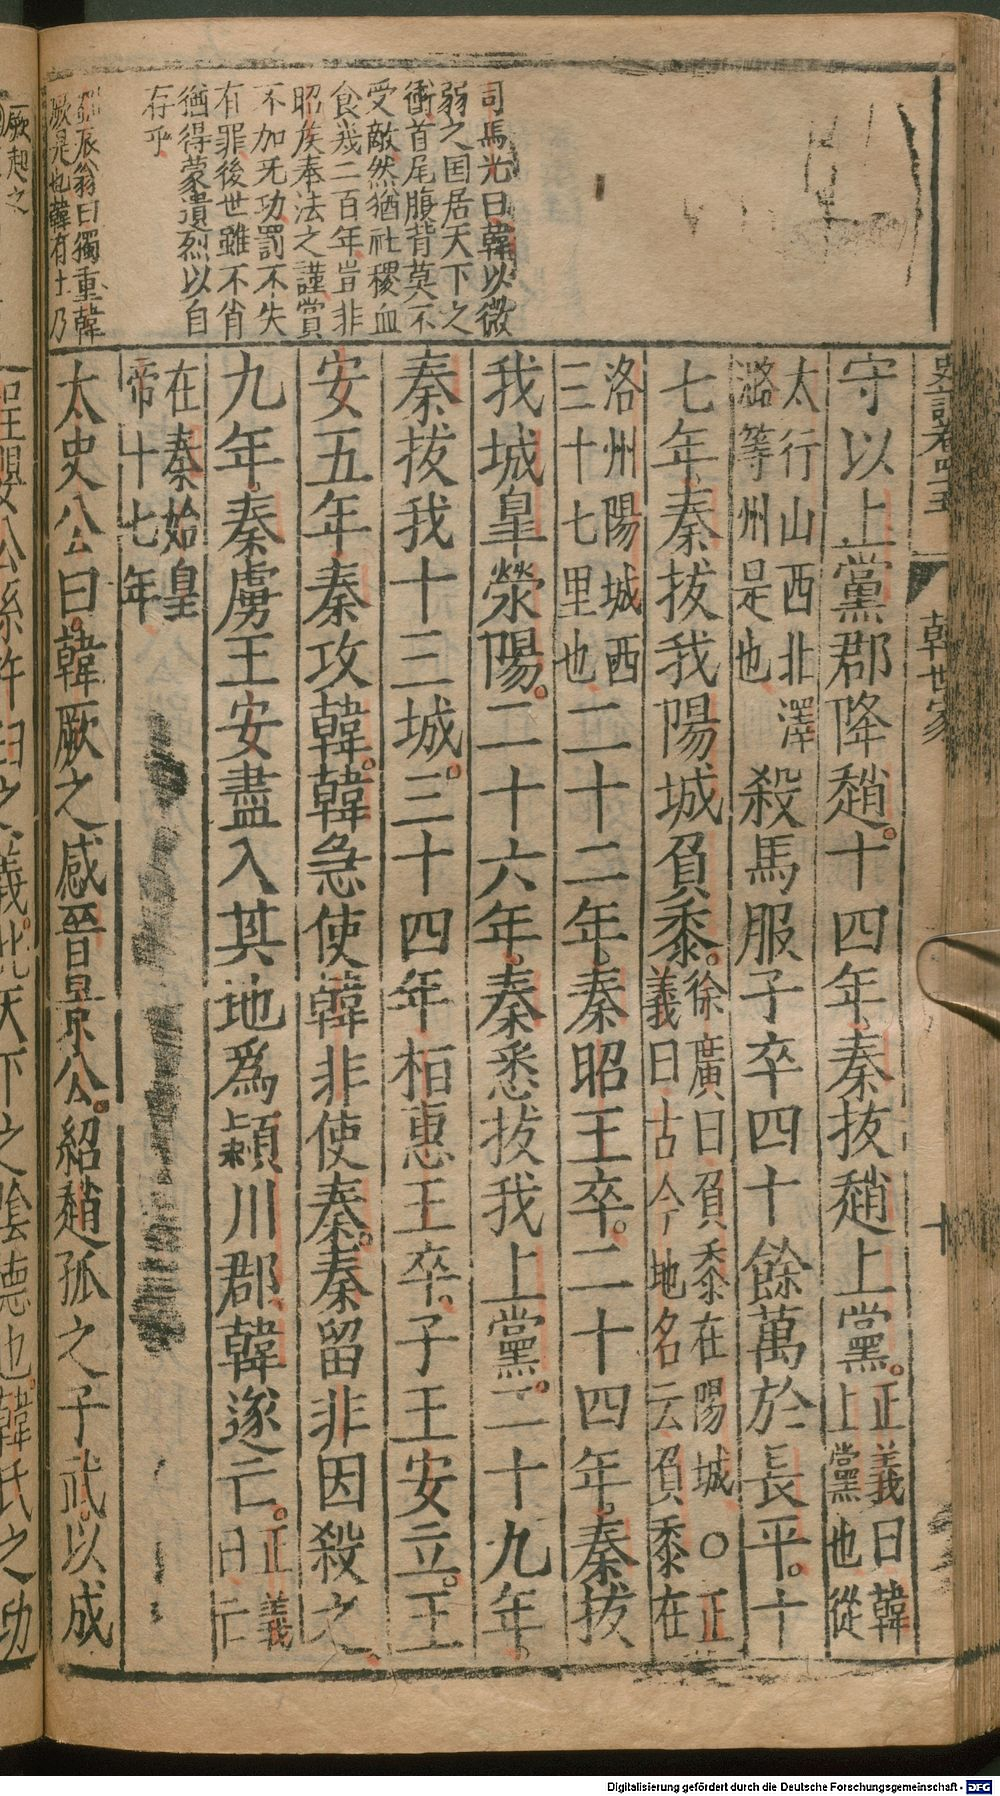 史記卷四十五
韓世家
十
守以上黨郡降趙十四年秦拔趙上黨正義曰韓
上黨也從
太行山西北澤
潞等州是也殺馬服子卒四十餘萬於長平十
七年秦拔我陽城負黍徐廣曰負黍在陽城〇正
義曰古今地名云負黍在
洛州陽城西
三十七里也二十二年秦昭王卒二十四年秦拔
我城皇滎陽二十六年秦悉拔我上黨二十九年
秦拔我十三城三十四年桓惠王卒子王安立王
安五年秦攻韓韓急使韓非使秦秦留非因殺之
九年秦虜王安盡入其地爲潁川郡韓遂亡正義
曰亡
在秦始皇
帝十七年
太史公曰韓厥之感晉景公紹趙孤之子武以成
司馬光曰韓以微
弱之国居天下之
衝首尾腹背莫不
受敵然猶社稷血
食幾二百年豈非
昭侯奉法之謹賞
不加无功罰不失
有罪後世雖不肖
猶得蒙遺烈以自
存乎
辰翁曰獨重韓
厥是也韓有士乃
厥起之
公孫杵臼之義此天下之陰德也韓氏之功
Digitalisierung gefördert durch die Deutsche Forschungsgemeinschaft - DFG